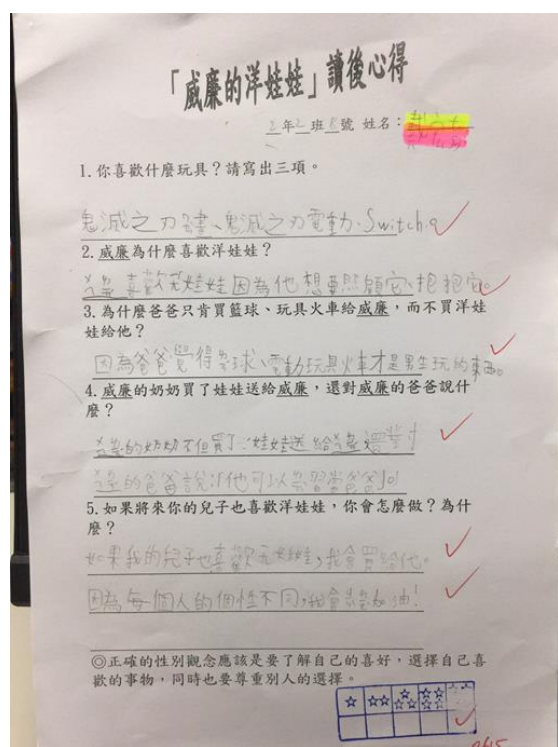 「威廉的洋娃娃」讀後心得
2年2班8號 姓名：
1.你喜歡什麼玩具？請寫出三項。
鬼滅之刃鍵、鬼滅之刃電動、Switch。
2.威廉為什麼喜歡洋娃娃？
喜歡 娃娃因為他想要照顧它、抱抱它。
3.為什麼爸爸只肯買籃球、玩具火車給威廉，而不買洋娃
娃給他？
因為爸爸覺得 球、電動玩具火車才是男生玩的東西。
4.威廉的奶奶買了娃娃送給威廉，還對威廉的爸爸說什
麼？
的奶奶不但買了 娃娃送給 還對
的爸爸說:「他可以學習當爸爸」。
5.如果將來你的兒子也喜歡洋娃娃，你會怎麼做？為什
麼？
如果我的兒子也喜歡 娃娃,我會買給他。
因為每個人的個性不同,我會 加油!
◎正確的性別觀念應該是要了解自己的喜好，選擇自己喜
歡的事物，同時也要尊重別人的選擇。